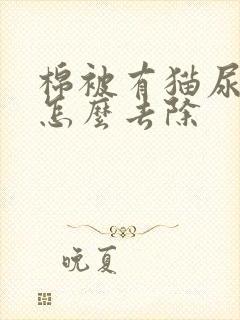 棉被有猫尿
怎麼去除
晚夏